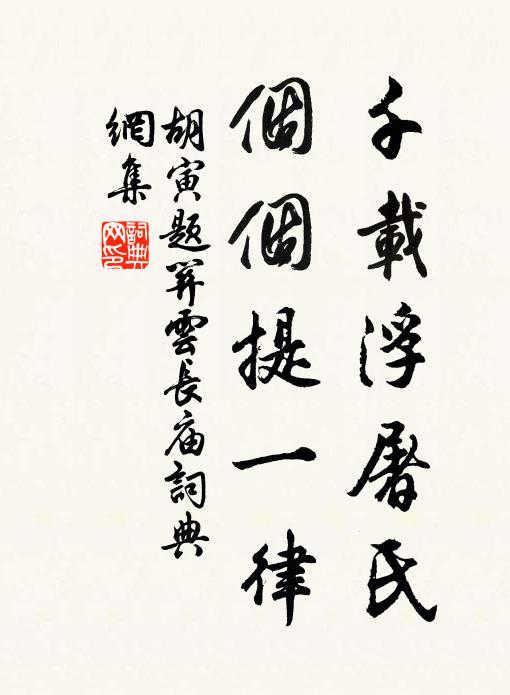 千載浮屠氏
個個提一律
胡寅题關雲長庙詞典
網集
詞典
网印